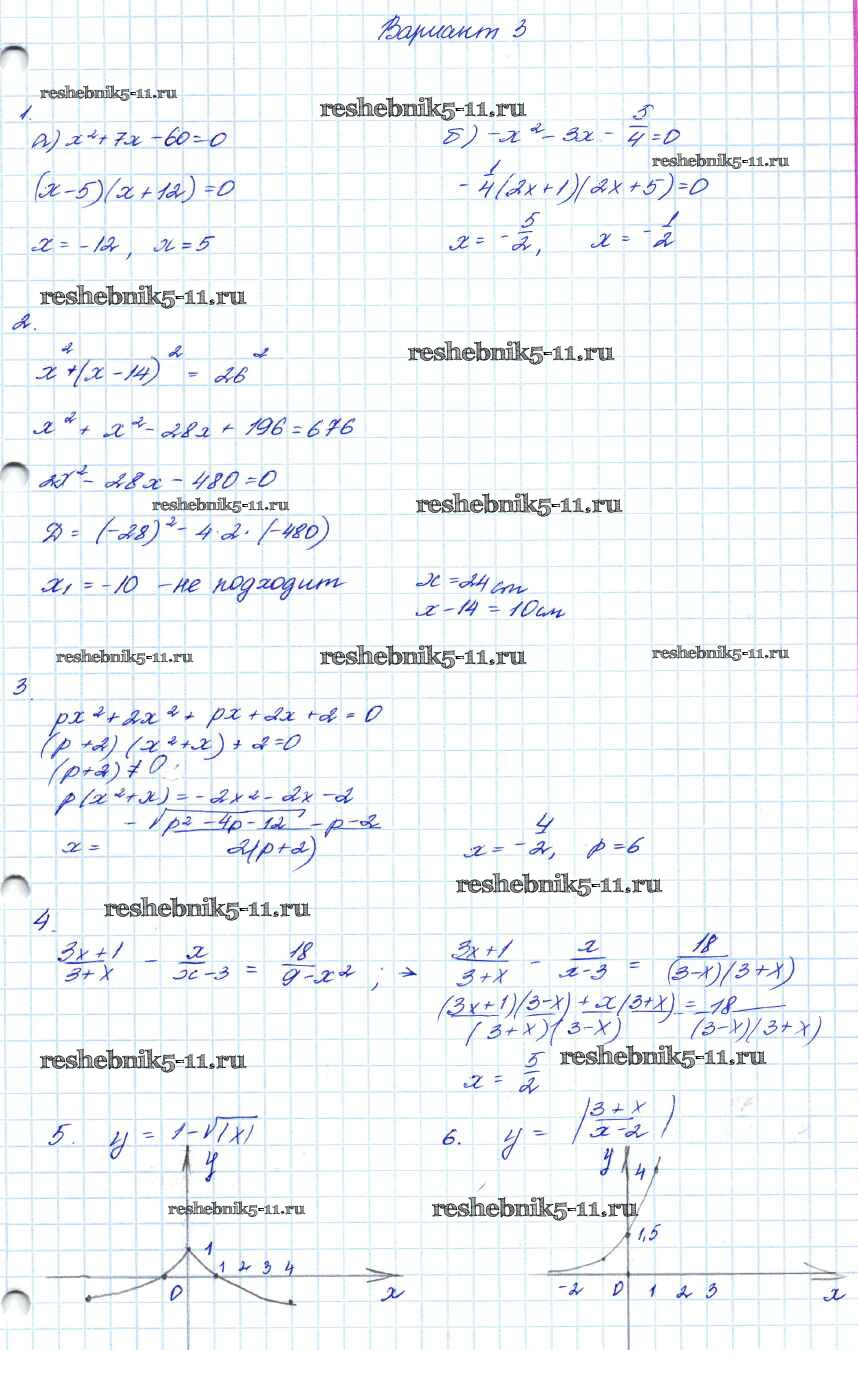 Вариант 3
reshebnik5-11.ru
reshebnik5-11.ru
1.
а) x² + 7x - 60 = 0
б) -x² - 3x - 5/4 = 0
reshebnik5-11.ru
(x-5)(x+12) = 0
-1/4(2x+1)(2x+5) = 0
x = -12, x = 5
x = -5/2, x = -1/2
reshebnik5-11.ru
2.
reshebnik5-11.ru
x² + (x-14)² = 26²
x² + x² - 28x + 196 = 676
2x² - 28x - 480 = 0
reshebnik5-11.ru
reshebnik5-11.ru
D = (-28)² - 4·2·(-480)
x₁ = -10 - не подходит
x = 24 cm
x - 14 = 10 см
reshebnik5-11.ru
reshebnik5-11.ru
reshebnik5-11.ru
3.
px² + 2x² + px + 2x + 2 = 0
(p+2)(x²+x) + 2 = 0
(p+2) ≠ 0;
p(x²+x) = -2x² - 2x - 2
x = (-√(p² - 4p - 12) - p - 2)/(2(p+2))
x = -4/2, p = 6
reshebnik5-11.ru
reshebnik5-11.ru
4.
(3x+1)/(3+x) - x/(x-3) = 18/(9-x²); →
(3x+1)/(3+x) - x/(x-3) = 18/((3-x)(3+x))
((3x+1)(3-x) + x(3+x))/((3+x)(3-x)) = 18/((3-x)(3+x))
reshebnik5-11.ru
reshebnik5-11.ru
x = 5/2
5. y = 1 - √|x|
6. y = |(3+x)/(x-2)|
y
y 4
reshebnik5-11.ru
reshebnik5-11.ru
1
1,5
1 2 3 4
0 x
-2 0 1 2 3 x